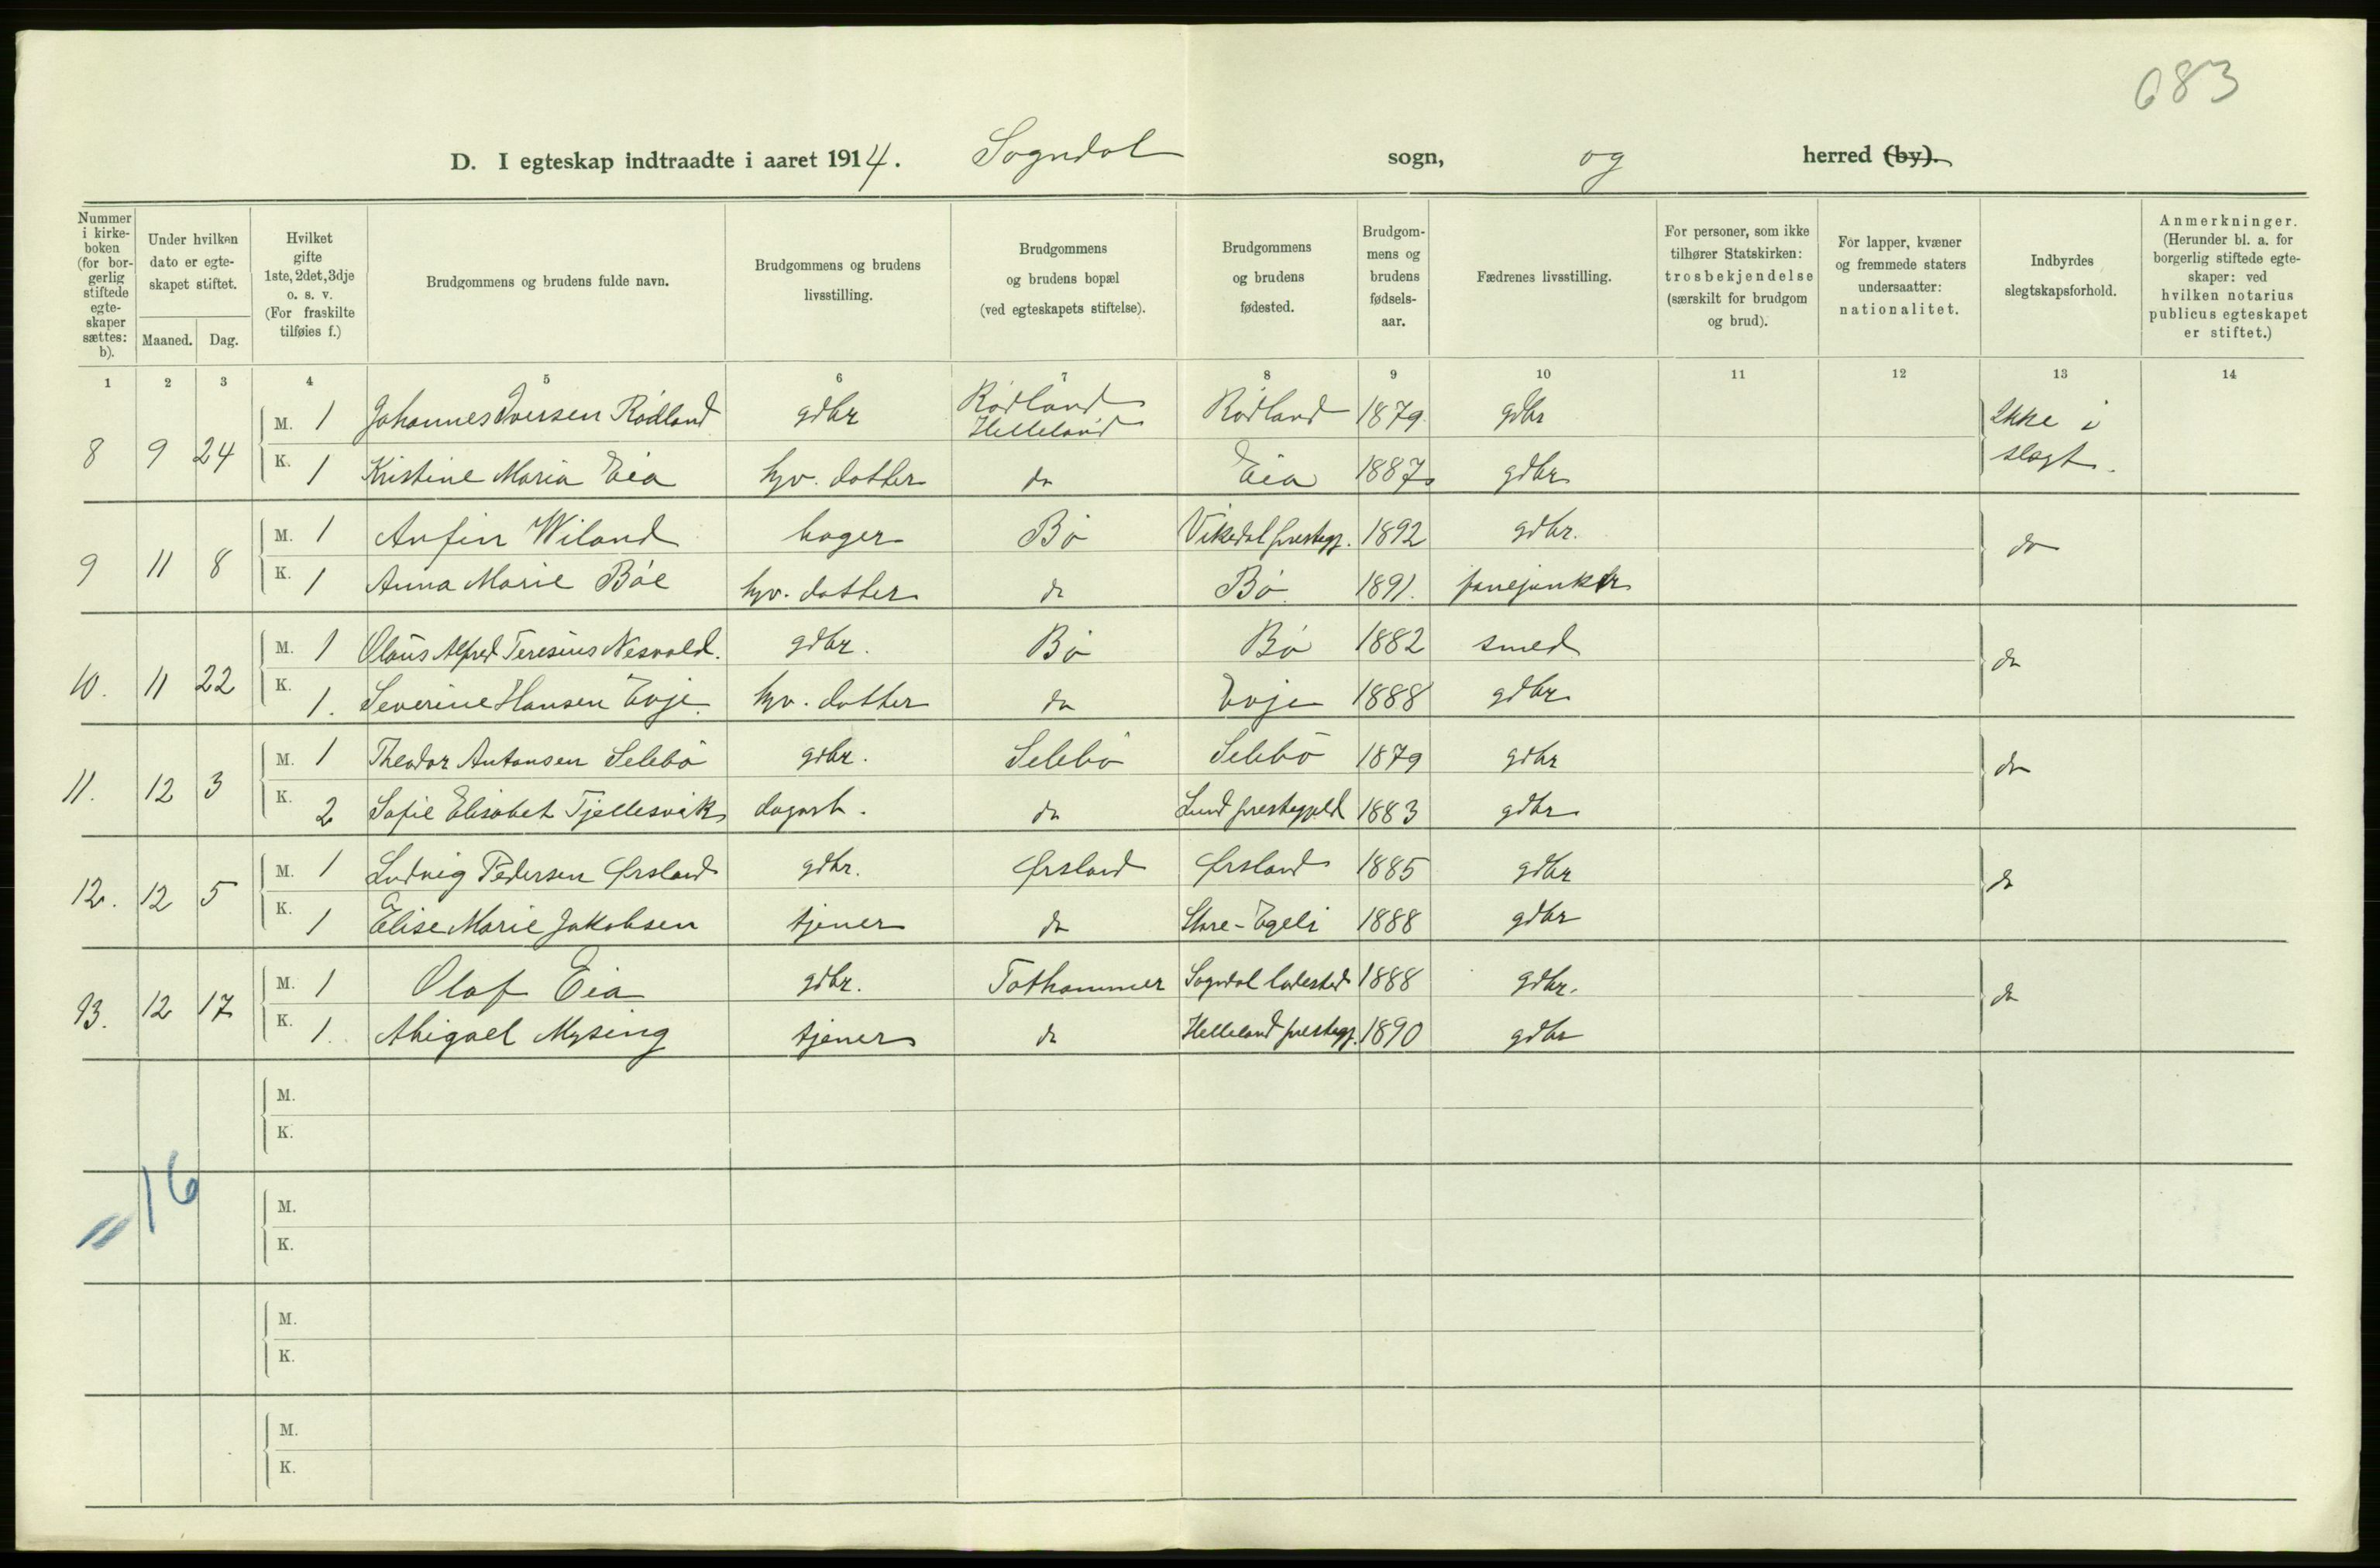 683
D. I egteskap indtraadte i aaret 1914. Sogndal sogn, og herred (by).
Nummer i kirkeboken (for borgerlig stiftede egteskaper sættes: b).
Under hvilken dato er egteskapet stiftet.
Maaned. Dag.
Hvilket gifte 1ste, 2det, 3dje o. s. v. (For fraskilte tilføies f.)
Brudgommens og brudens fulde navn.
Brudgommens og brudens livsstilling.
Brudgommens og brudens bopæl (ved egteskapets stiftelse).
Brudgommens og brudens fødested.
Brudgommens og brudens fødselsaar.
Fædrenes livsstilling.
For personer, som ikke tilhører Statskirken: trosbekjendelse (særskilt for brudgom og brud).
For lapper, kvæner og fremmede staters undersaatter: nationalitet.
Indbyrdes slegtskapsforhold.
Anmerkninger. (Herunder bl. a. for borgerlig stiftede egteskaper: ved hvilken notarius publicus egteskapet er stiftet.)
1 2 3 4 5 6 7 8 9 10 11 12 13 14
8 9 24 M. 1 Johannes Iversen Rødland gdbr Rødland Helleland Rødland 1879 gdbr Ikke i slegt.
K. 1 Kristine Maria Eia hjv. datter do Eia 1887 gdbr
9 11 8 M. 1 Anfin Wiland bager Bø Vikedal prestegj. 1892 gdbr. do
K. 1 Anna Marie Bøe hjv. datter do Bø 1891. fanejunker
10. 11 22 M. 1 Olaus Alfred Teresius Nesvold. gdbr. Bø Bø 1882 smed do
K. 1. Severine Hansen Evje. hjv. datter do Evje 1888 gdbr
11. 12 3 M. 1 Theodor Antonsen Selebø gdbr. Selebø Selebø 1879 gdbr do
K. 2 Sofie Elisabet Tjellesvik dagarb. do Lund prestegjeld 1883 gdbr
12. 12 5 M. 1 Ludvig Pedersen Ørsland gdbr. Ørsland Ørsland 1885 gdbr do
K. 1 Elise Marie Jakobsen tjener do Store-Egeli 1888 gdbr
13. 12 17 M. 1 Olaf Eia gdbr. Tothammer Sogndal ladested 1888 gdbr. do
K. 1. Abigael Mysing tjener do Helleland prestegj. 1890 gdbr
M.
K.
16
M.
K.
M.
K.
M.
K.